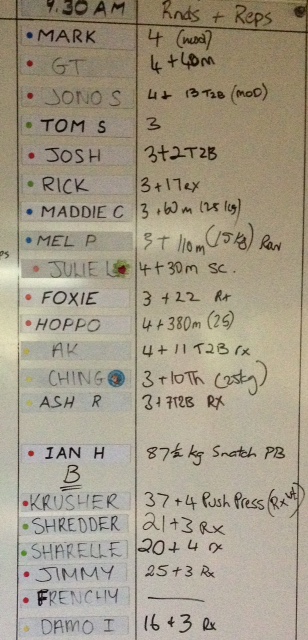 9.30 AM Rnds + Reps
MARK 4 (mod)
GT 4 + 40m
JONO S 4 + 13 T2B (MOD)
TOM S 3
JOSH 3+2T2B
RICK 3+17rx
MADDIE C 3 + 60m (25kg)
MEL P 3 + 110m (15kg) Ran
JULIE L 4+30m sc.
FOXIE 3 + 22 Rx
HOPPO 4 + 380m (25)
AK 4 + 11 T2B rx
CHING 3 + 10Th (25kg)
ASH R 3+7T2B RX
IAN H 87½ kg Snatch PB
B
KRUSHER 37 + 4 Push Press (Rx wt)
SHREDDER 21+3 Rx
SHARELLE 20 + 4 rx
JIMMY 25+3 Rx
FRENCHY
DAMO I 16 + 3 Rx